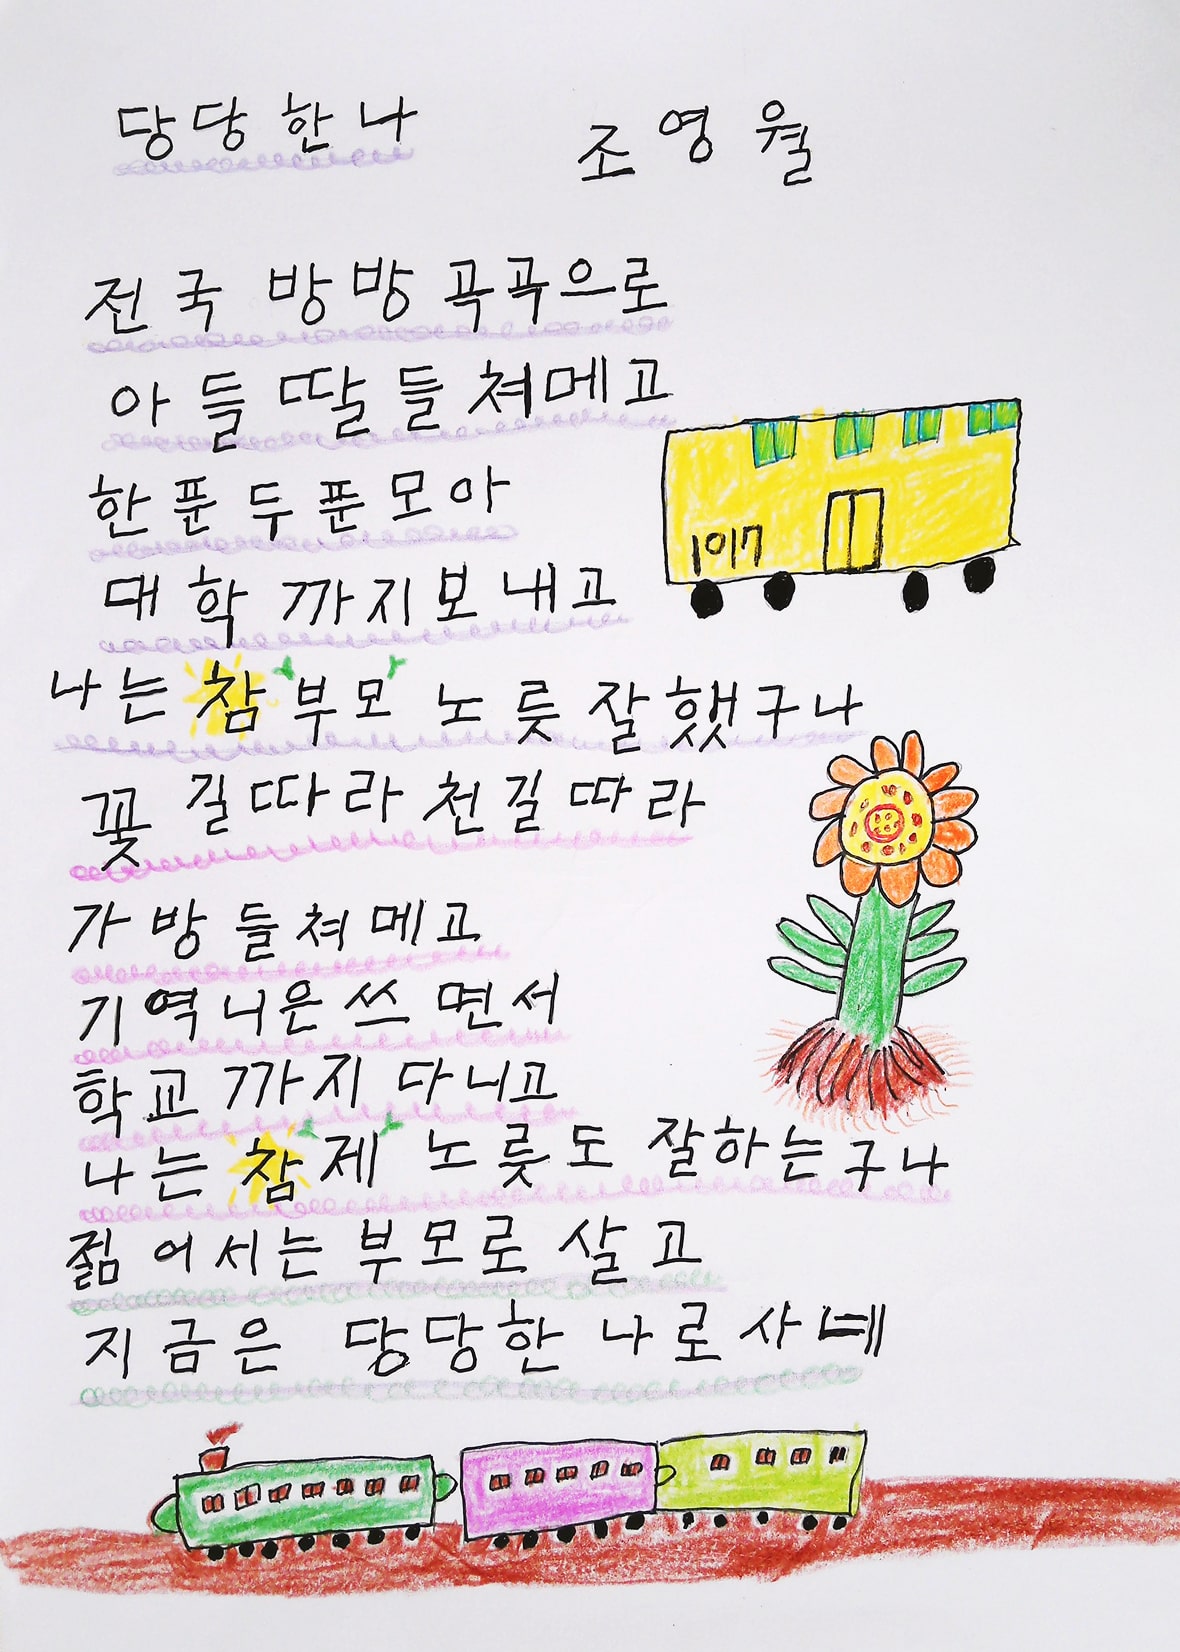 당당한 나 조영월
전국 방방 곡곡으로
아들 딸들 쳐메고
한푼 두푼 모아
대학 까지 보내고
나는 참 부모 노릇 잘했구나
꽃 길따라 천길 따라
가방 들쳐 메고
기역 니은 쓰면서
학교 까지 다니고
나는 참 제 노릇도 잘하는구나
젊어서는 부모로 살고
지금은 당당한 나로 사네
1017